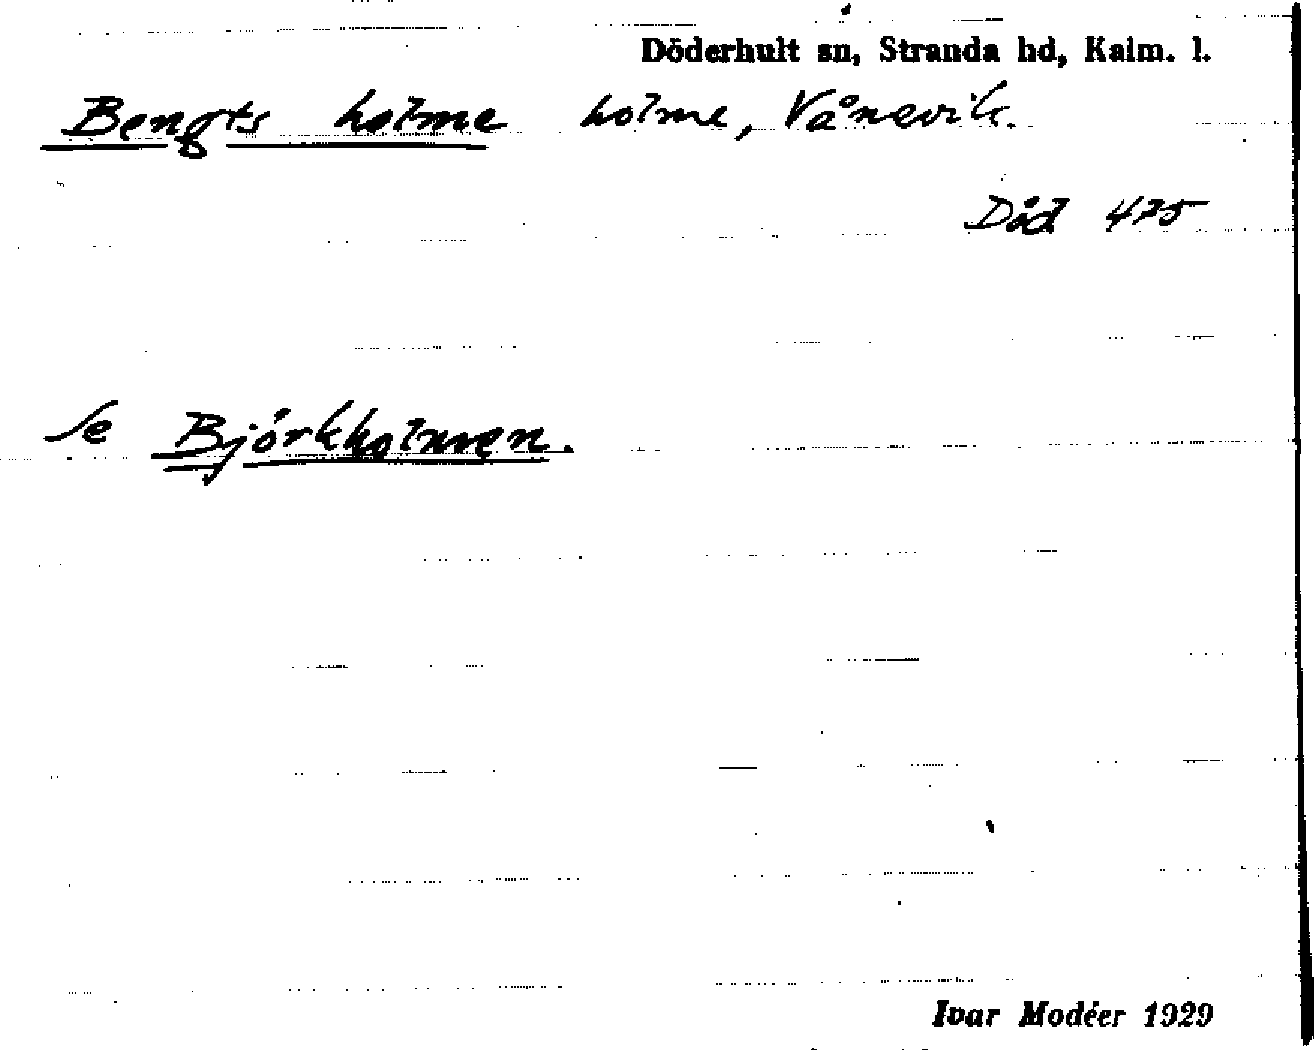 Döderhult sn, Stranda hd, Kalm. l.
Bengts holme holme, Vånevik.
Död 475
Se Björkholmen.
Ivar Modéer 1929